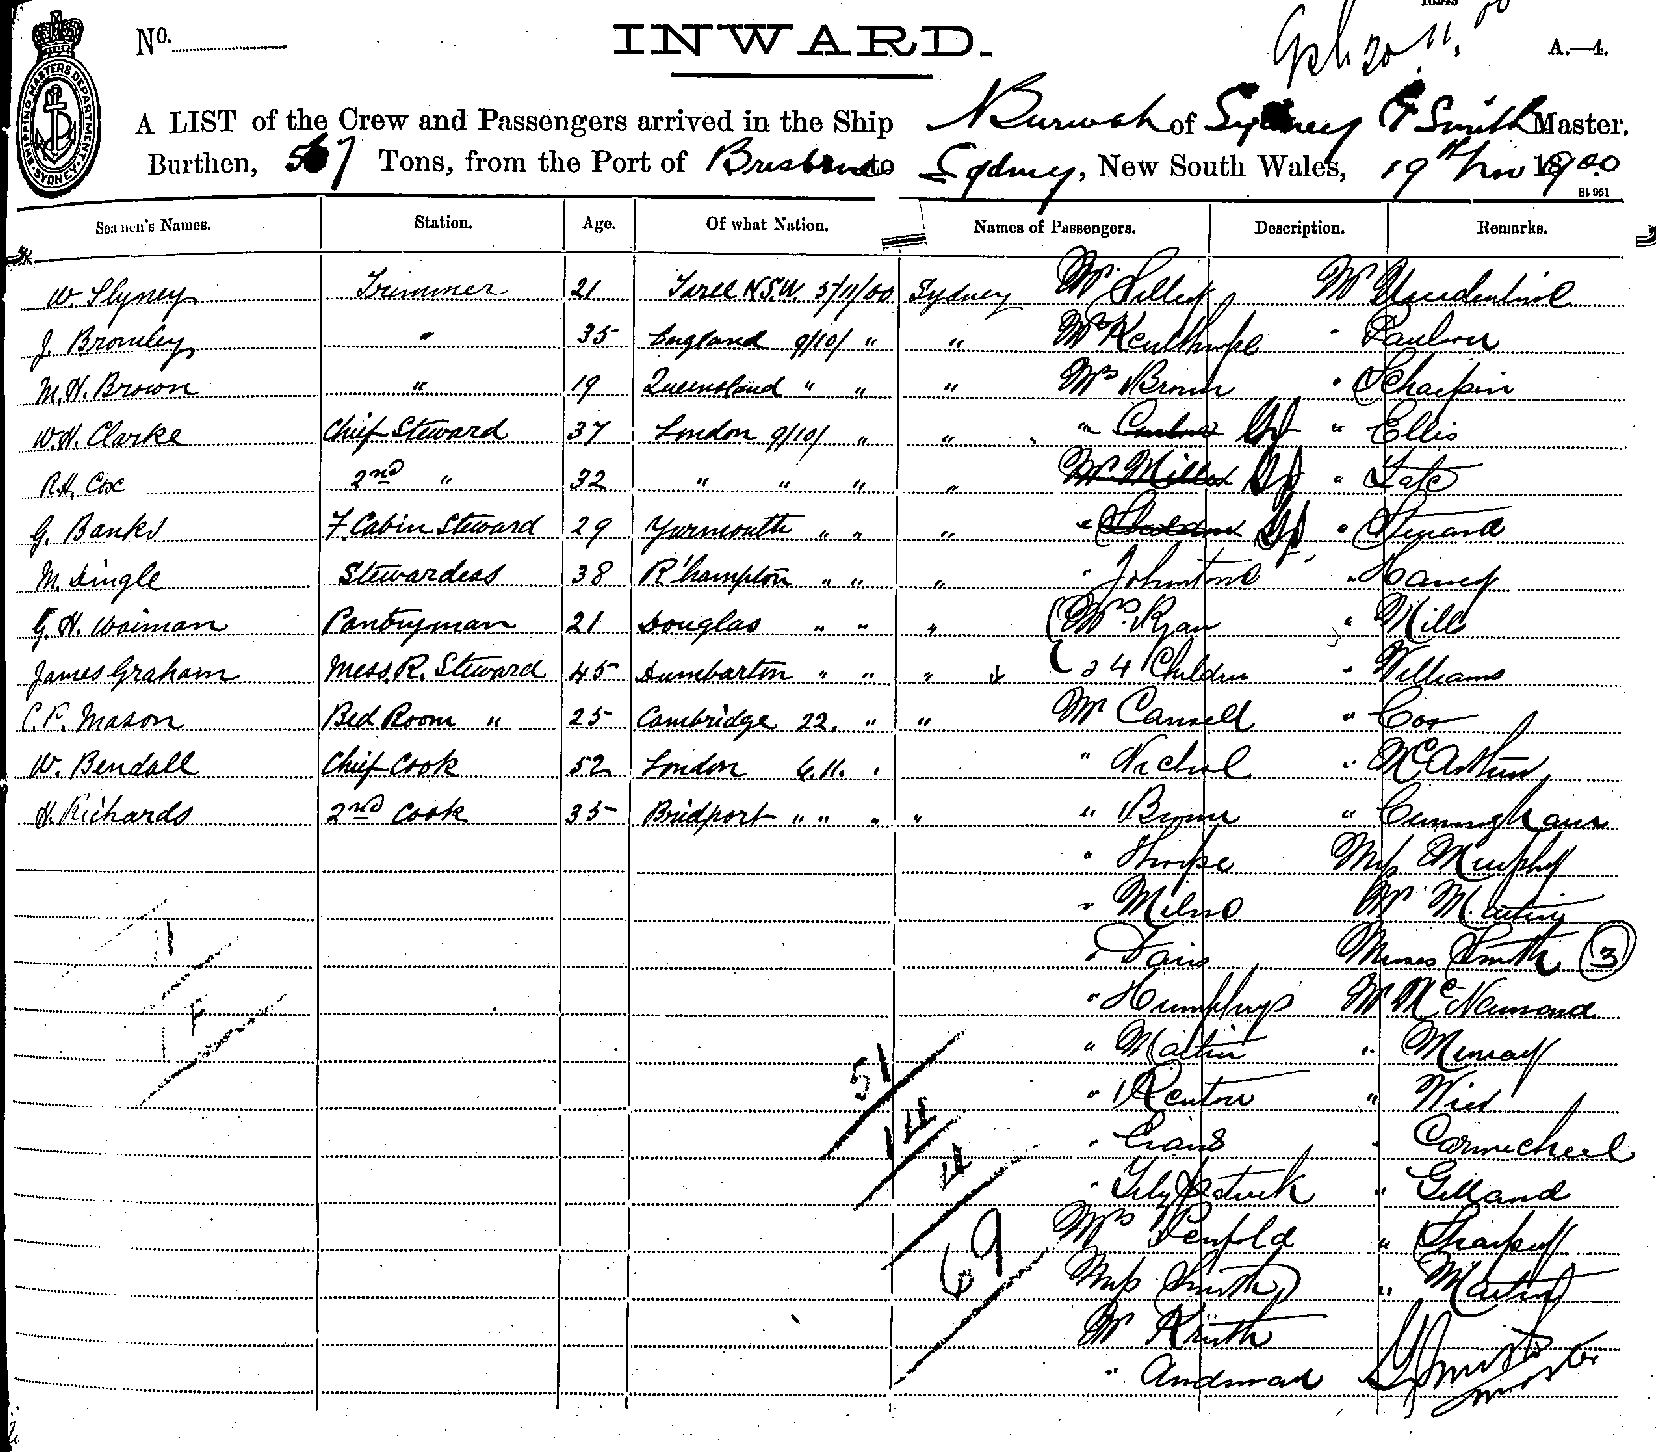 No.
INWARD.
A.—1.
A LIST of the Crew and Passengers arrived in the Ship Burwah of Sydney F Smith Master.
Burthen, 567 Tons, from the Port of Brisbane to Sydney, New South Wales, 19th Nov 1900
Seamen's Names. Station. Age. Of what Nation. Names of Passengers. Description. Remarks.
W. Slyney Trimmer 21 N.S.W. 5/11/00 Sydney Mr
J. Bromley " 35 England 9/10/ " " Mr
M. H. Brown " 19 Queensland " " " Mrs Brown "
W. H. Clarke Chief Steward 37 London 9/10/ " " " " Ellis
R. H. Cox 2nd " 32 " " " " Mr Miller " Tate
G. Banks F. Cabin Steward 29 Yarmouth " " " " "
M. Dingle Stewardess 38 R'hampton " " " " Johnstone "
G. H. Waiman Pantryman 21 Douglas " " " Mrs Ryan " Mills
James Graham Mess. R. Steward 45 Dumbarton " " " 4 Children " Williams
C. F. Mason Bed Room " 25 Cambridge 22. " " Mr " Cox
W. Bendall Chief Cook 52 London 6.11. " " Nichol " McArthur
H. Richards 2nd Cook 35 Bridport " " " " " Brown " Cunningham
" Thorpe Miss Murphy
" Milne Mr Martin
" Davis Misses Smith 3
" Humphrys Mr
" Martin "
" Renton "
" Evans " Carmichael
" "
Mrs Penfold "
Miss Smith " Martin
Mr
"
51
14
4
69